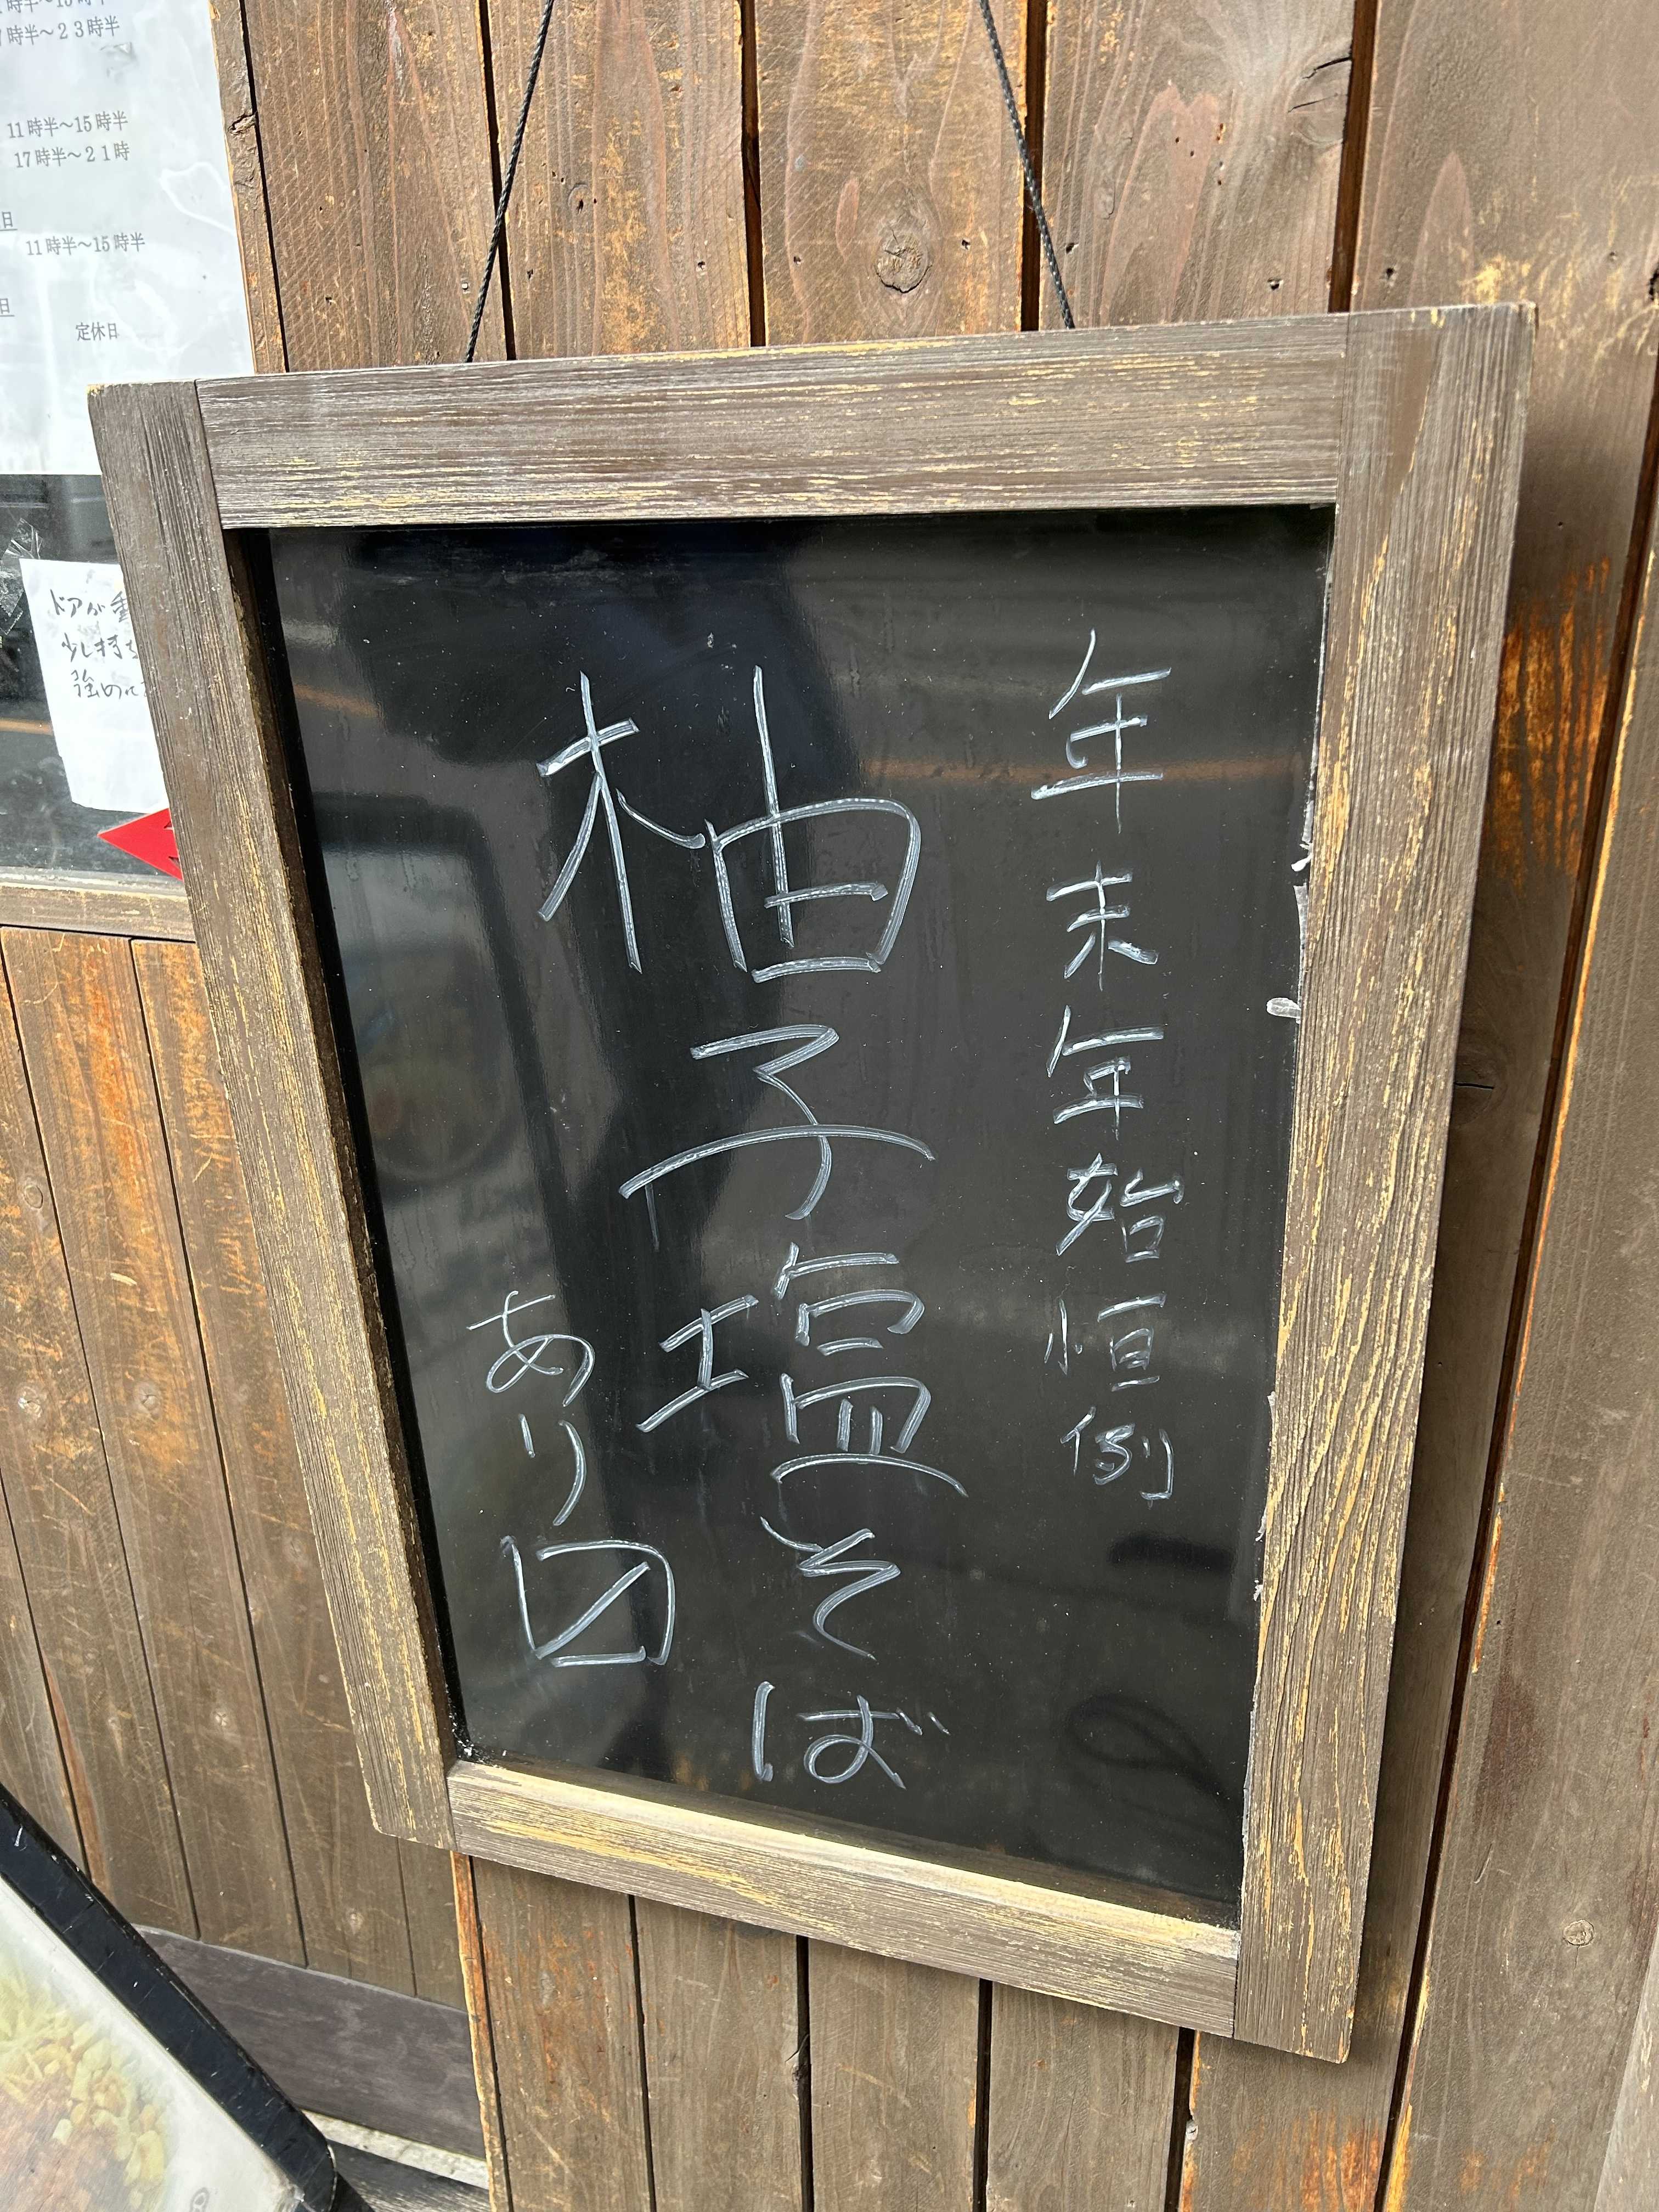 年末年始恒例
柚子塩そば
あり〼
時半～15時半
時半～23時半
11時半～15時半
17時半～21時
日
11時半～15時半
日
定休日
ドアが重
少し持ち
強めに